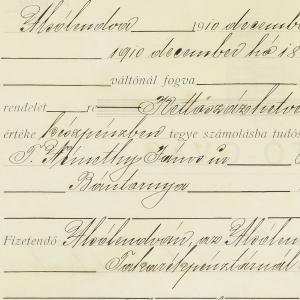 Alsólendva 1910 decembe
1910 december hó 18
váltónál fogva
rendelet re Kettőszázhetve
értéke készpénzben tegye számolásba tudós
T. Némethy János úr
Bántornya
Fizetendő Alsólendván, az Alsólen
Takarékpénztárnál